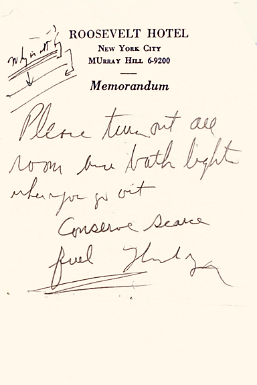 ROOSEVELT HOTEL
NEW YORK CITY
MURRAY HILL 6-9200
Memorandum
Please turn out all
room and bath lights
when you go out
Conserve scarce
fuel Thank you